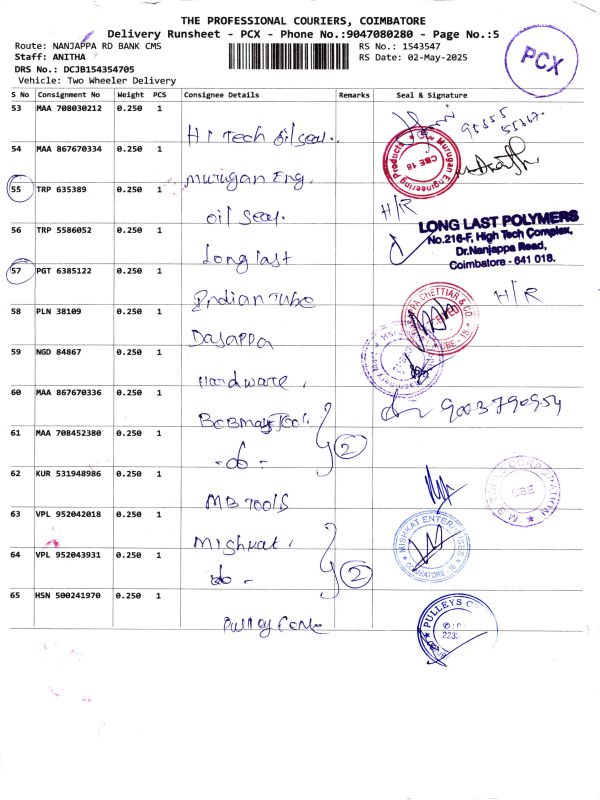 THE PROFESSIONAL COURIERS, COIMBATORE
Delivery Runsheet - PCX - Phone No.:9047080280 - Page No.:5
Route: NANJAPPA RD BANK CMS
RS No.: 1543547
Staff: ANITHA
RS Date: 02-May-2025
DRS No.: DCJB154354705
Vehicle: Two Wheeler Delivery
PCX
S No Consignment No Weight PCS Consignee Details Remarks Seal & Signature
53 MAA 708030212 0.250 1
Hi Tech oil seal.
54 MAA 867670334 0.250 1
Murugan Eng.
Murugan Engineering Products
CBE 18
55 TRP 635389 0.250 1
oil seal.
H/R
56 TRP 5586052 0.250 1
Long last
LONG LAST POLYMERS
No.216-F, High Tech Complex,
Dr.Nanjappa Road,
Coimbatore - 641 018.
57 PGT 6385122 0.250 1
Indian Tube
H/R
58 PLN 38109 0.250 1
Dasappa
CHETTIAR & CO.
CBE - 18
59 NGD 84867 0.250 1
Hardware.
60 MAA 867670336 0.250 1
Tool.
9003790954
61 MAA 708452380 0.250 1
- do -
2
62 KUR 531948986 0.250 1
MB Tools
CORPORATION
CBE
63 VPL 952042018 0.250 1
Mishkat.
MISHKAT ENTERPRISES
COIMBATORE - 18
64 VPL 952043931 0.250 1
do -
2
65 HSN 500241970 0.250 1
Pulley
PULLEYS